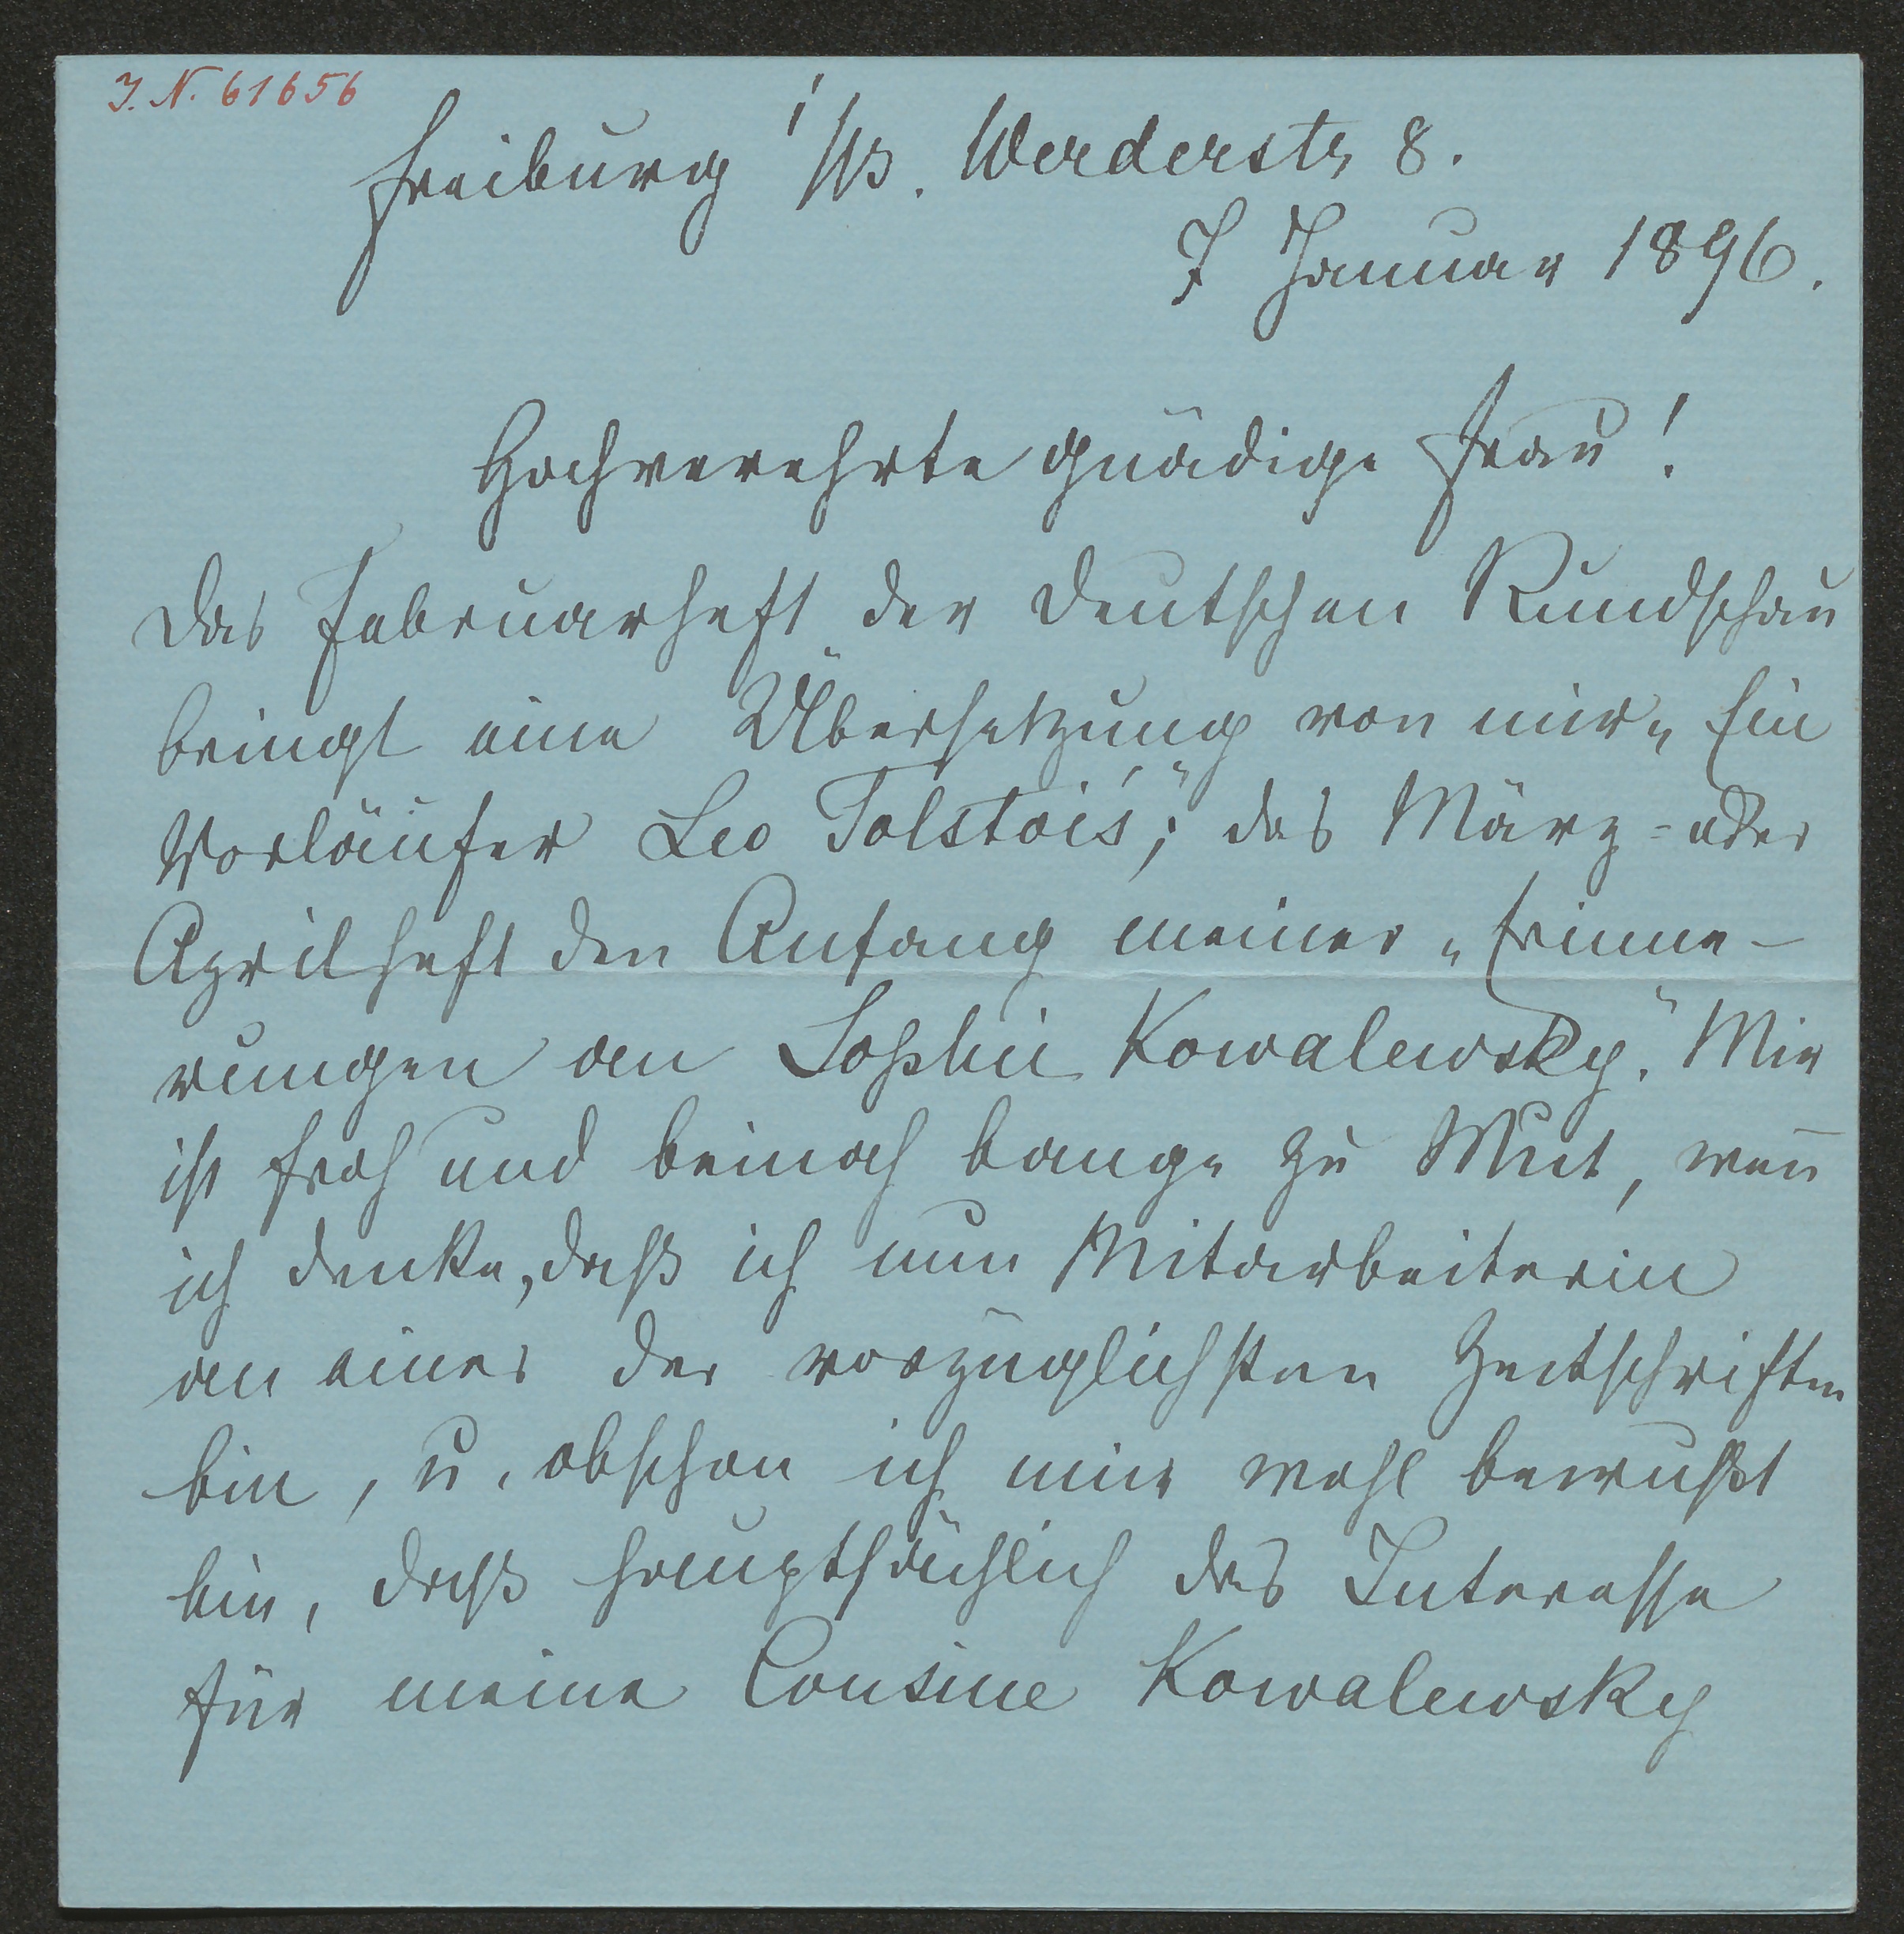 I. N. 61656
Freiburg i/B. Werderstr 8.
7 Januar 1896.
Hochverehrte gnädige Frau!
Das Februarheft der Deutschen Rundschau
bringt eine Übersetzung von mir „Ein
Vorläufer Leo Tolstoi's“; das März- oder
Aprilheft den Anfang meiner „Erinne-
rungen an Sophie Kowalewsky.“ Mir
ist froh und beinah bange zu Mut, weñ
ich denke, daß ich nun Mitarbeiterin
an einer der vorzüglichsten Zeitschriften
bin, u. obschon ich mir wohl bewußt
bin, daß hauptsächlich das Interesse
für meine Cousine Kowalewsky